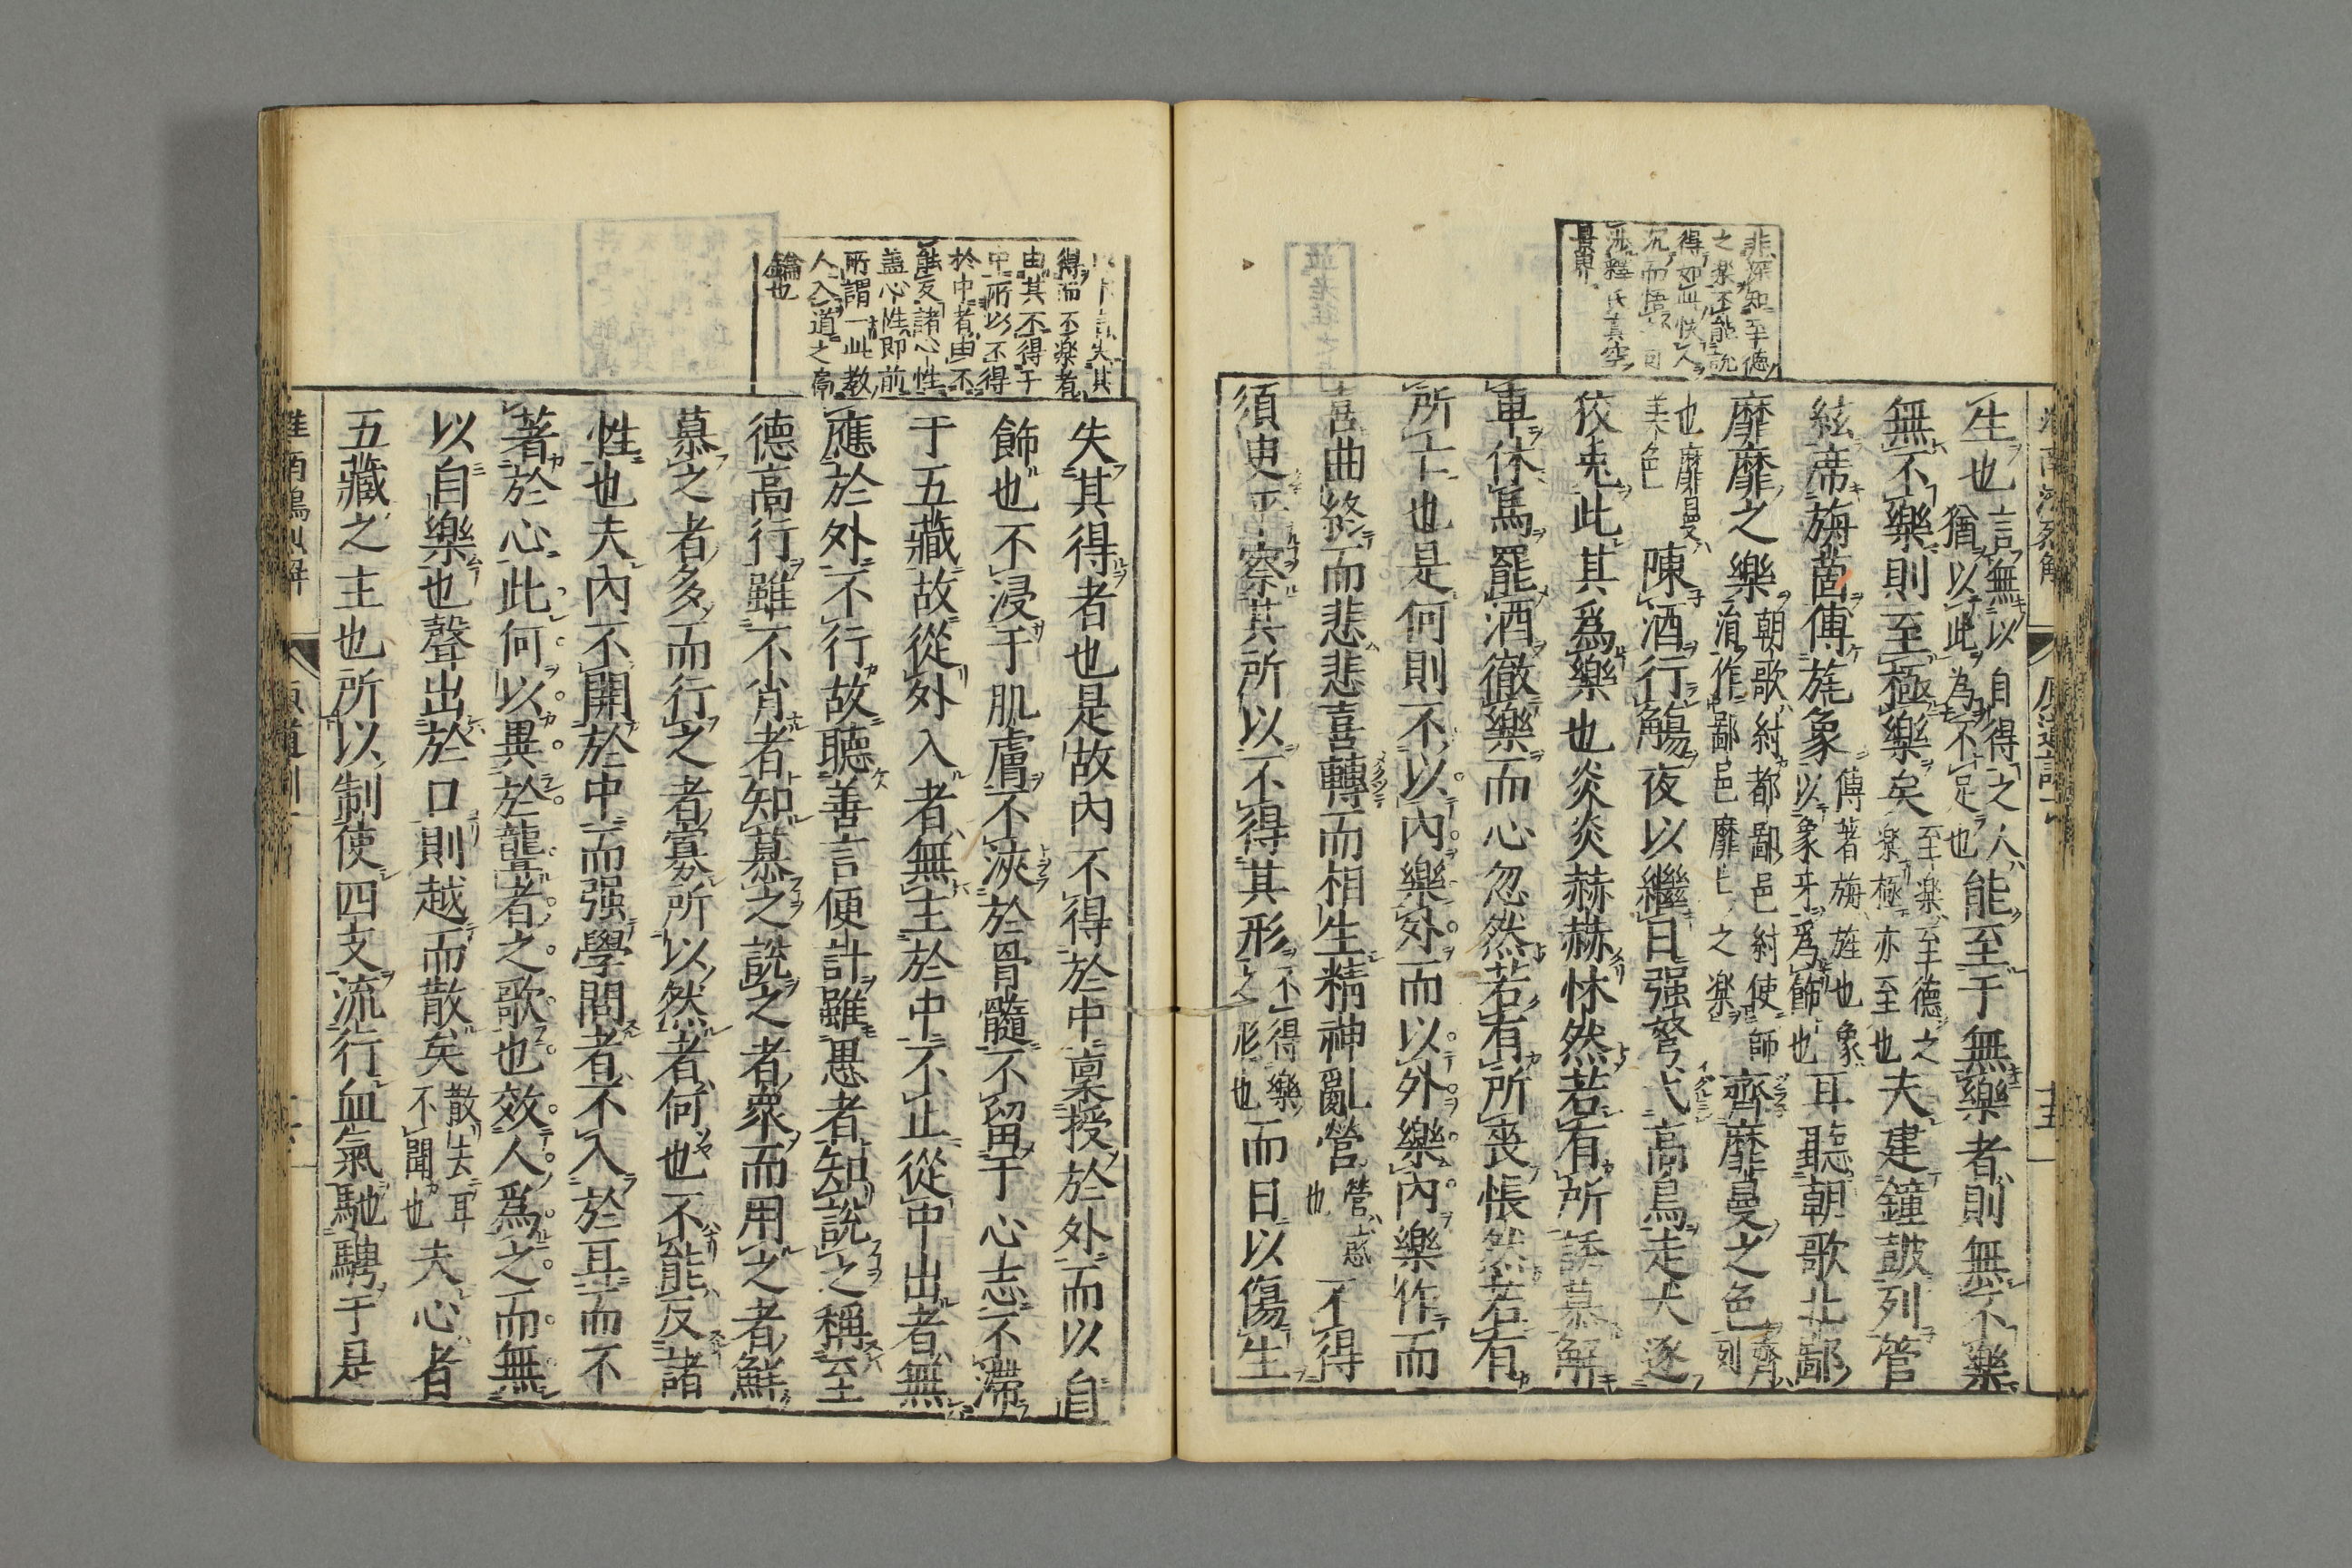 非深知至德
之楽不能說
得如此快人
沉而悟
氏真空
景界
生也言無以自得之人
猶以此為不足也能至于無樂者則無不樂
無不樂則至極樂矣至楽至德之
楽極亦至也夫建鐘鼓列管
絃席旃茵傅旄象傅著旃旌也象
以象牙為飾也耳聽朝歌北鄙
靡靡之樂朝歌紂都鄙邑紂使師
涓作鄙邑靡靡之楽齊靡曼之色列齊
也靡曼
美色陳酒行觴夜以繼日强弩弋高鳥走犬逐
狡兎此其爲樂也炎炎赫赫怵然若有所誘慕解
車休馬罷酒徹樂而心忽然若有所喪悵然若有
所亡也是何則不以内樂外而以外樂内樂作而
喜曲終而悲悲喜轉而相生精神亂營營惑
也不得
須臾平察其所以不得其形不得樂
之形也而日以傷生
淮南鴻烈解 原道訓 十五
得而不楽者
由其不得于
中所以不得
於中者由不
能反諸心性
盖心性即前
所謂一此教
人入道之
鑰也
失其得者也是故内不得於中禀授於外而以自
飾也不浸于肌膚不浹於骨髓不留于心志不滯
于五藏故從外入者無主於中不止從中出者無
應於外不行故聽善言便計雖愚者知說之稱至
德高行雖不肖者知慕之說之者衆而用之者鮮
慕之者多而行之者寡所以然者何也不能反諸
性也夫内不開於中而强學問者不入於耳而不
著於心此何以異於聾者之歌也效人爲之而無
以自樂也聲出於口則越而散矣散去耳
不聞也夫心者
五藏之主也所以制使四支流行血氣馳騁于是